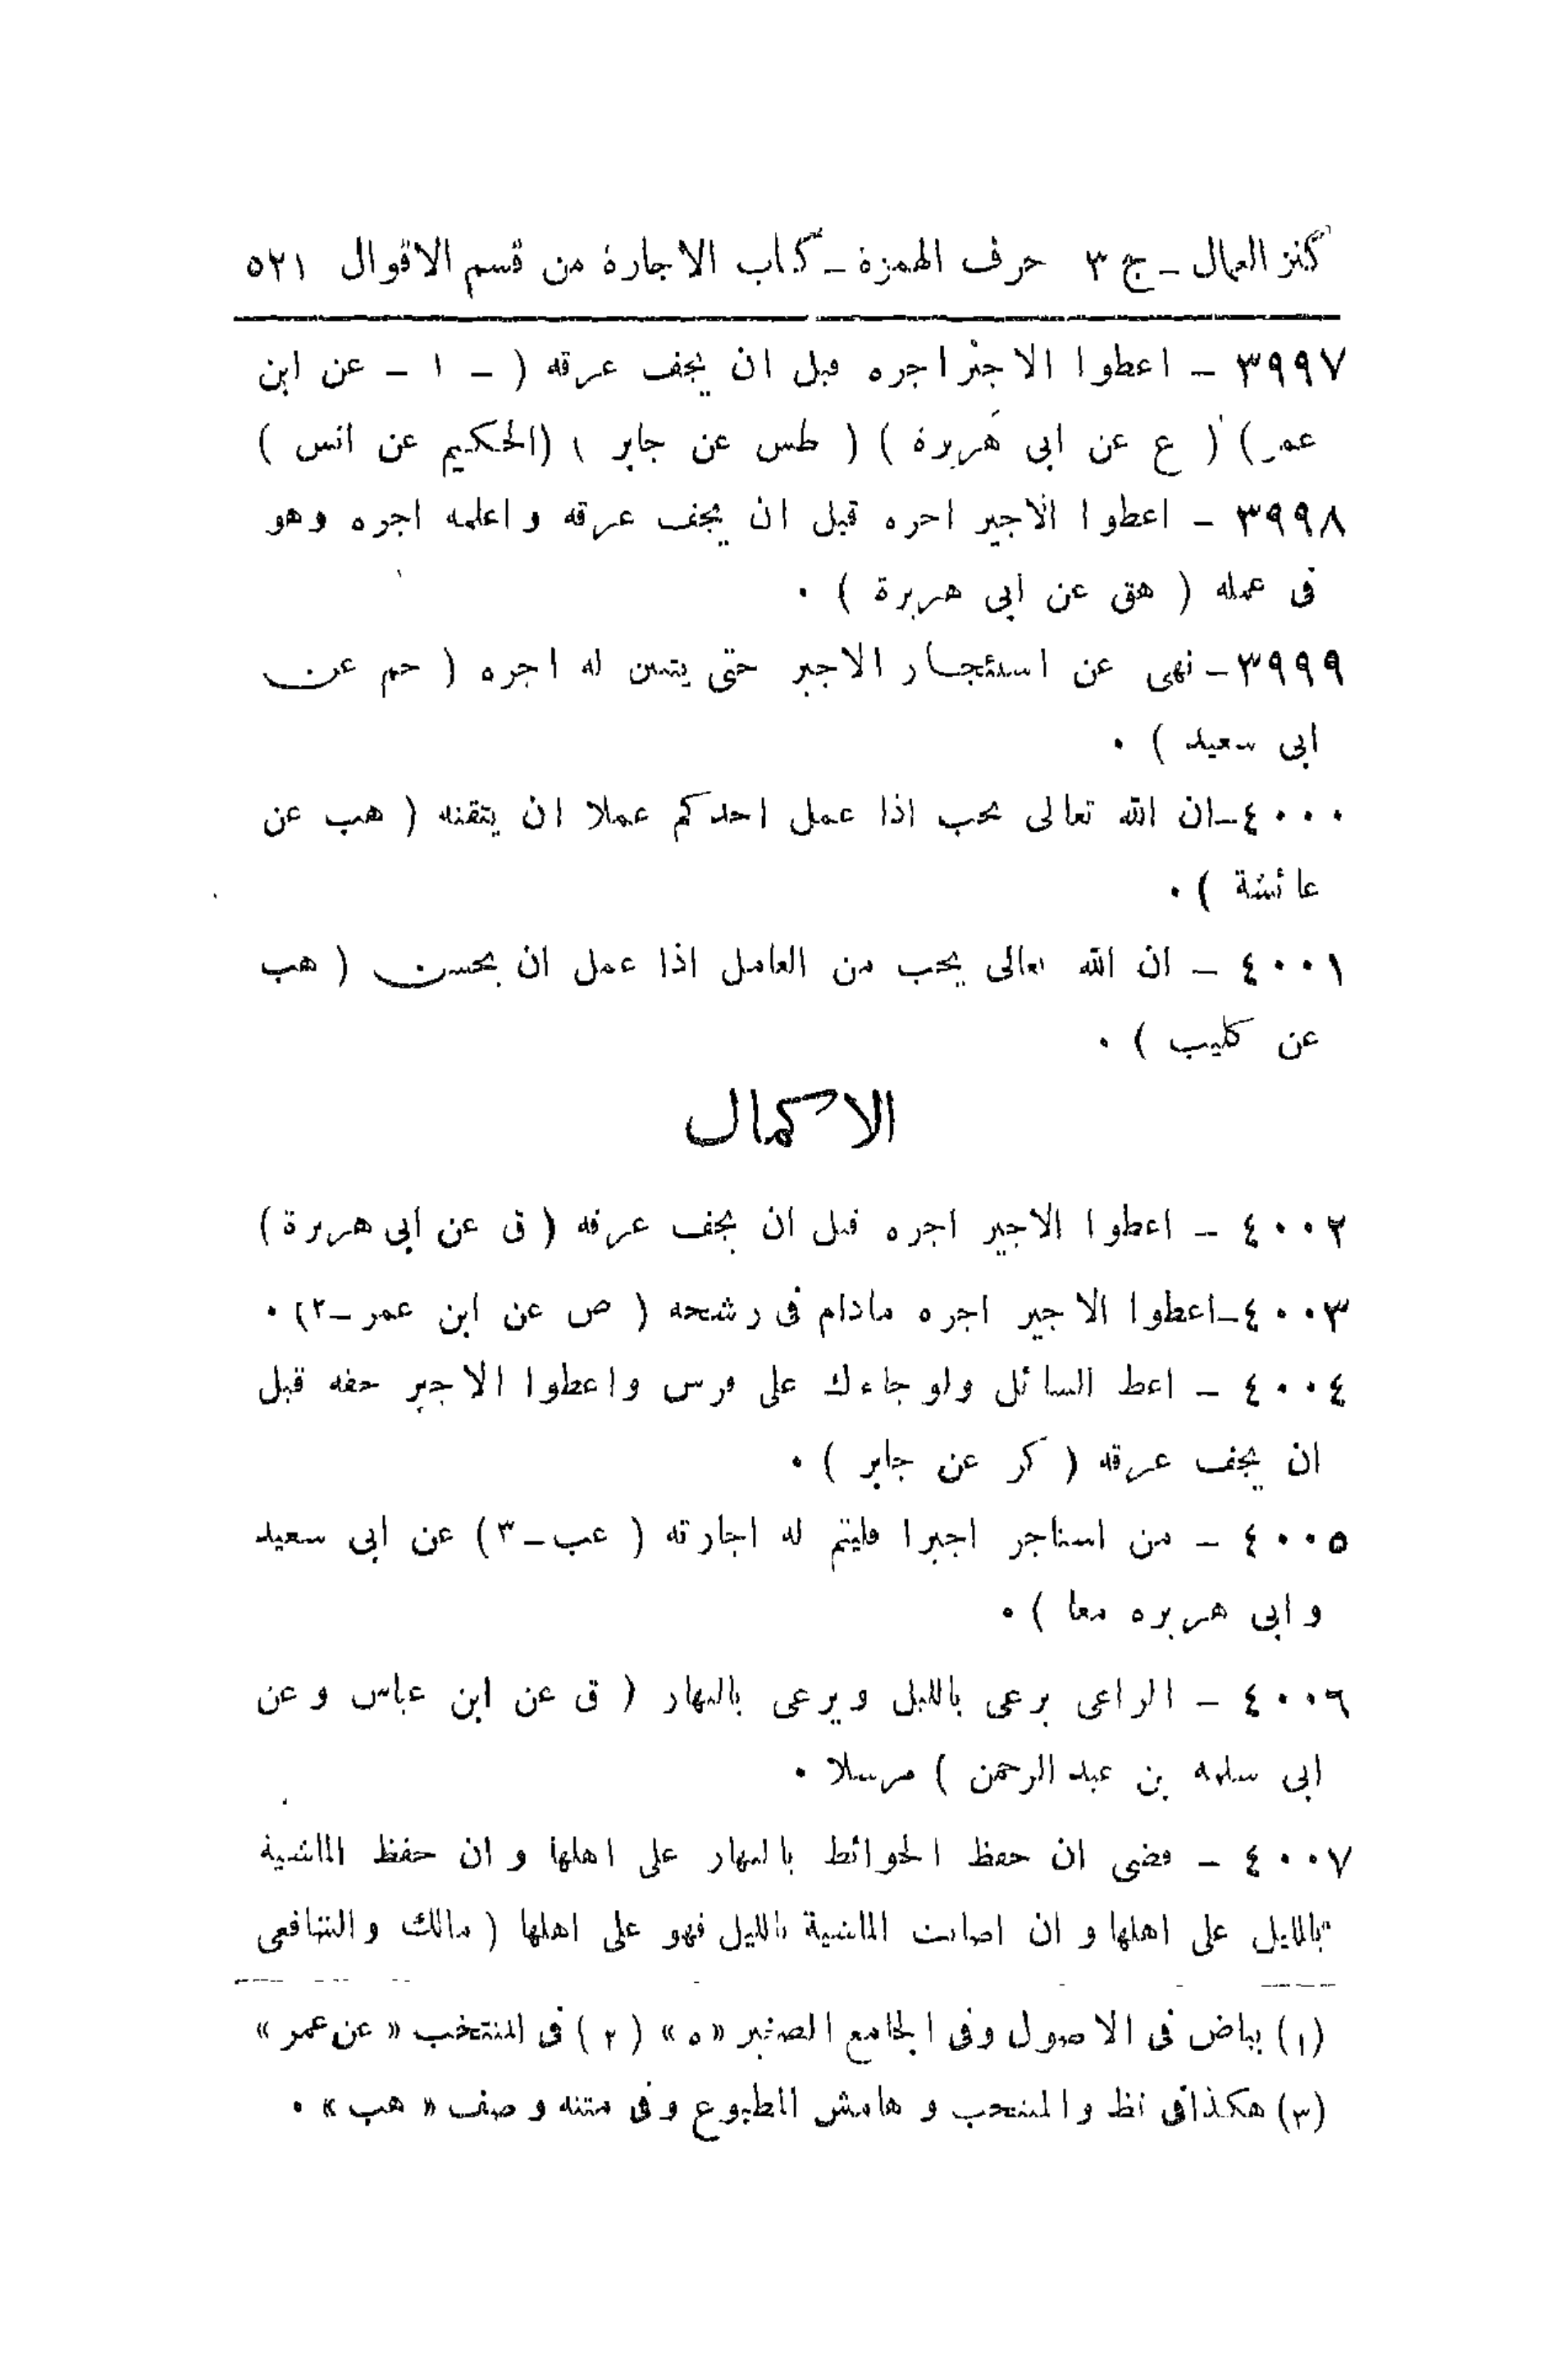 كنز العمال ـ ج ٣ حرف الهمزة ـ كتاب الاجارة من قسم الاقوال ٥٢١
٣٩٩٧ ـ اعطوا الاجير اجره قبل ان يجف عرقه ( ـ ١ ـ عن ابن
عمر) ( ع عن ابى هريرة ) ( طس عن جابر ) (الحكيم عن انس )
٣٩٩٨ ـ اعطوا الاجير اجره قبل ان يجف عرقه واعلمه اجره وهو
فى عمله ( هق عن ابى هريرة ) ٠
٣٩٩٩ـ نهى عن استئجار الاجير حتى يتبين له اجره ( حم عن
ابى سعيد ) ٠
٤٠٠٠ـان الله تعالى يحب اذا عمل احدكم عملا ان يتقنه ( هب عن
عائشة ) ٠
٤٠٠١ ـ ان الله تعالى يحب من العامل اذا عمل ان يحسن ( هب
عن كليب ) ٠
الاكمال
٤٠٠٢ ـ اعطوا الاجير اجره قبل ان يجف عرقه ( ق عن ابى هريرة )
٤٠٠٣ـاعطوا الاجير اجره مادام فى رشحه ( ص عن ابن عمر ـ٢) ٠
٤٠٠٤ ـ اعط السائل ولو جاءك على فرس واعطوا الاجير حقه قبل
ان يجف عرقه ( كر عن جابر ) ٠
٤٠٠٥ ـ من استاجر اجيرا فليتم له اجارته ( عب ـ٣) عن ابى سعيد
وابى هريره معا ) ٠
٤٠٠٦ ـ الراعى يرعى بالليل ويرعى بالنهار ( ق عن ابن عباس وعن
ابى سلمه بن عبد الرحمن ) مرسلا ٠
٤٠٠٧ ـ قضى ان حفظ الحوائط بالنهار على اهلها وان حفظ الماشية
بالليل على اهلها وان اصابت الماشية بالليل فهو على اهلها ( مالك والشافعى
(١) بياض فى الاصول وفى الجامع الصغير «٥» (٢) فى المنتخب « عن عمر »
(٣) هكذافى نظ والمنتخب وهامش المطبوع وفى متنه وصف « هب » ٠